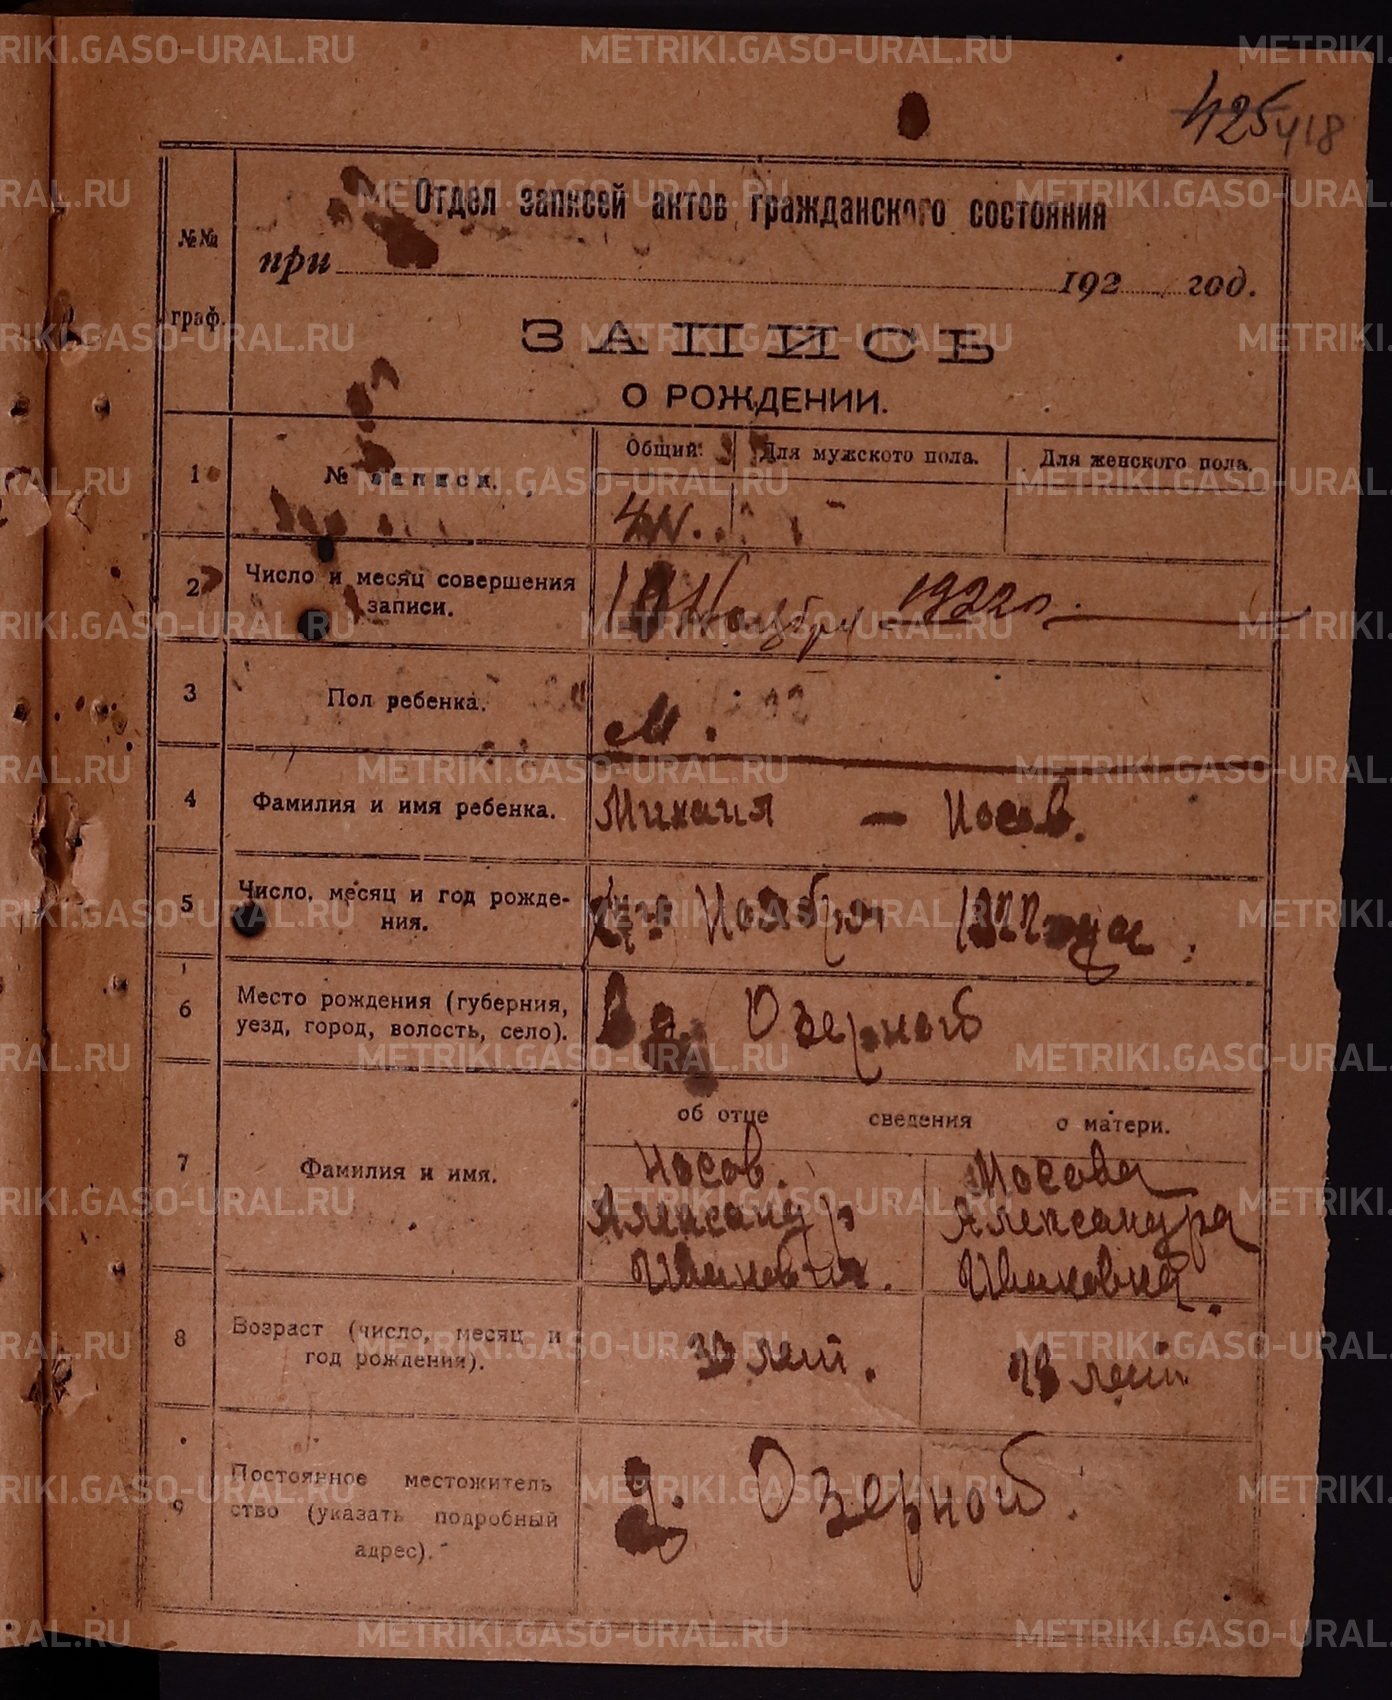 425 418
Отдел записей актов гражданского состояния
№№
при 192 год.
граф.
ЗАПИСЬ
О РОЖДЕНИИ.
Общий. Для мужского пола. Для женского пола.
1 № записи.
2 Число и месяц совершения
записи.
Ноября 1922 г.
3 Пол ребенка.
М.
4 Фамилия и имя ребенка. Михаил — Носов.
5 Число, месяц и год рожде-
ния.
Ноября 1922 года.
6 Место рождения (губерния,
уезд, город, волость, село).
В д. Озерной
об отце сведения о матери.
7 Фамилия и имя.
Носов. Носова
Александр Александра
Иванович. Ивановна.
8 Возраст (число, месяц и
год рождения).
30 лет. лет
9 Постоянное местожитель
ство (указать подробный
адрес).
д. Озерной.
METRIKI.GASO-URAL.RU